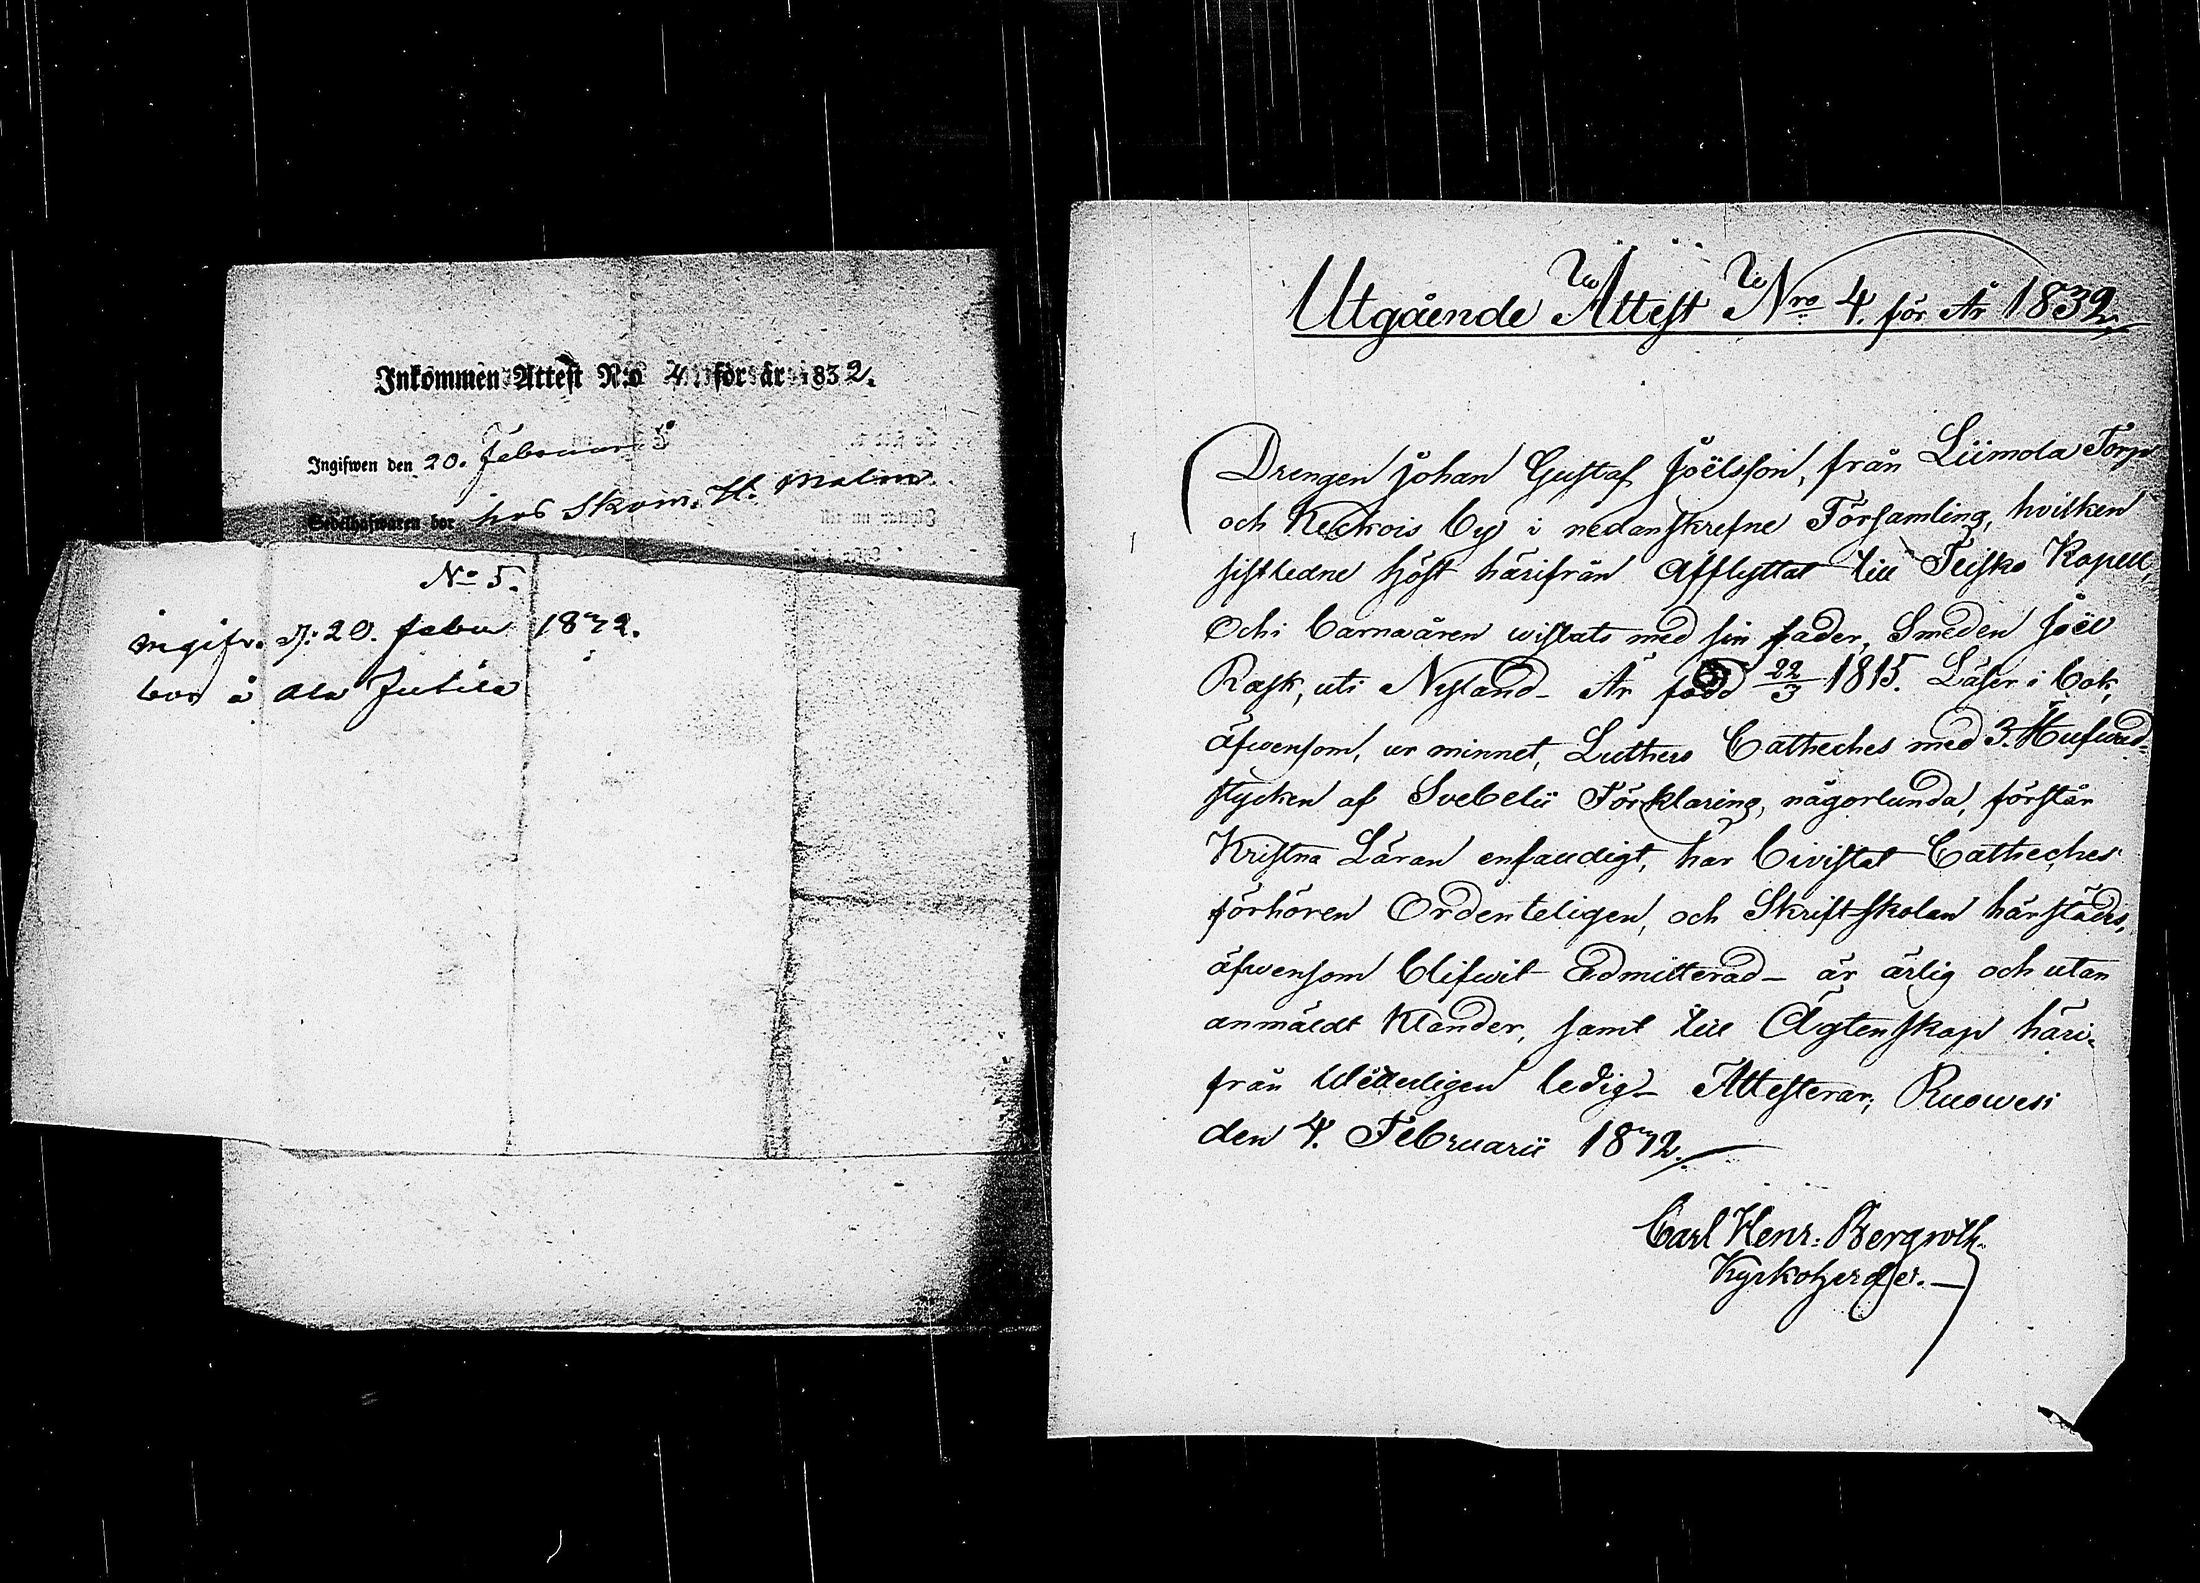 Inkommen Attest N:o 4 för år 1832.
Ingifwen den 20. Februari
Sedelhafwaren bor hos Skom. H. Malm.
No 5.
ingifv. d: 20. febru 1832.
bor å Ala Jutila
Utgående Attest Nro 4. för År 1832
Drengen Johan Gustaf Joëlsson, från Liimola Torp
och Keckois by i nedanskrefne Församling, hvilken
sistledne höst härifrån afflyttat till Teisko Kapell,
Och i barnaåren wistats med sin fader, Smeden Joël
Rask, uti Nyland - Är född 22/3 1815. Läser i bok,
äfwensom, ur minnet, Luthers Catheches med 3. Hufwud-
stycken af Svebelii Förklaring, någorlunda, förstår
Kristna Läran enfaldigt, har bivistat Catheches
förhören Ordenteligen, och Skriftskolan härstädes,
äfwensom blifwit Admitterad - är ärlig och utan
anmäldt klander, samt till Ägtenskap häri-
från ledig - Attesterar; Ruowesi
den 4. Februarii 1832.
Carl Henr: Bergroth
Kyrkoherde.